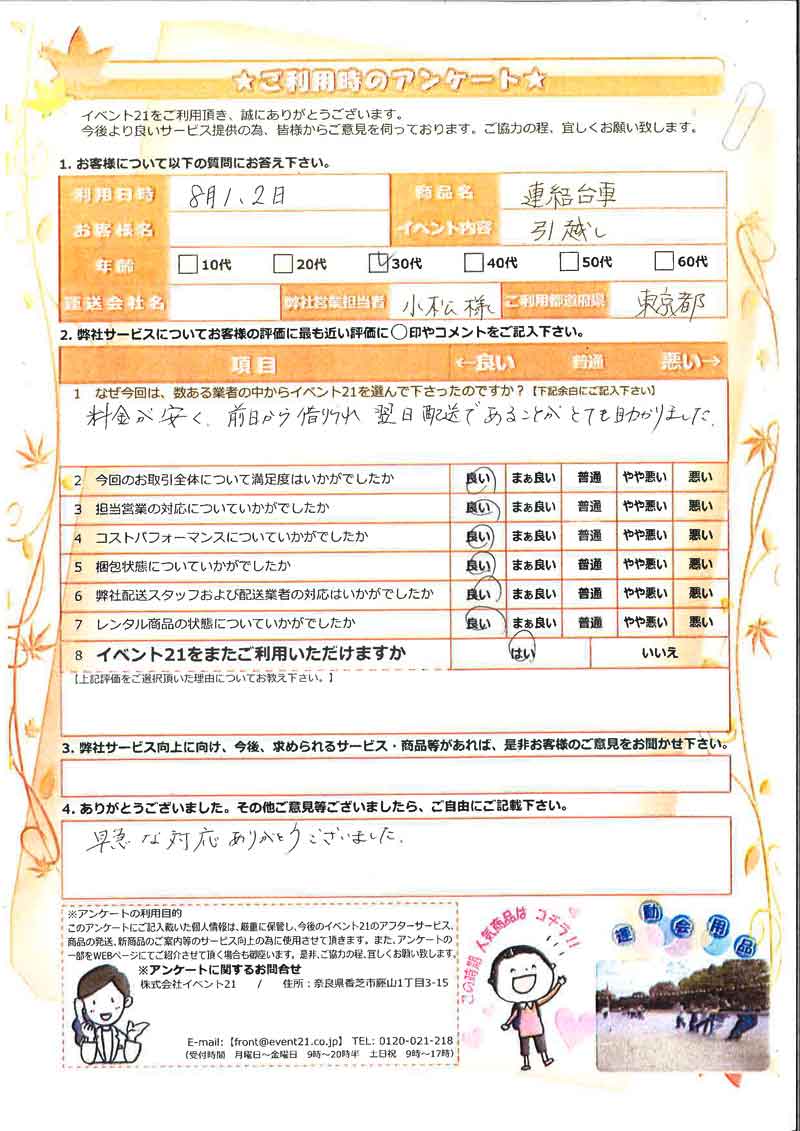 ★ご利用時のアンケート★
イベント21をご利用頂き、誠にありがとうございます。
今後より良いサービス提供の為、皆様からご意見を伺っております。ご協力の程、宜しくお願い致します。
1. お客様について以下の質問にお答え下さい。
利用日時 8月1、2日 商品名 連結台車
お客様名 イベント内容 引越し
年齢 10代 20代 30代 40代 50代 60代
運送会社名 弊社営業担当者 小松様 ご利用都道府県 東京都
2. 弊社サービスについてお客様の評価に最も近い評価に○印やコメントをご記入下さい。
項目 ←良い 普通 悪い→
1 なぜ今回は、数ある業者の中からイベント21を選んで下さったのですか?【下記余白にご記入下さい】
料金が安く、前日から借りられ 翌日配送であることがとても助かりました。
2 今回のお取引全体について満足度はいかがでしたか 良い まぁ良い 普通 やや悪い 悪い
3 担当営業の対応についていかがでしたか 良い まぁ良い 普通 やや悪い 悪い
4 コストパフォーマンスについていかがでしたか 良い まぁ良い 普通 やや悪い 悪い
5 梱包状態についていかがでしたか 良い まぁ良い 普通 やや悪い 悪い
6 弊社配送スタッフおよび配送業者の対応はいかがでしたか 良い まぁ良い 普通 やや悪い 悪い
7 レンタル商品の状態についていかがでしたか 良い まぁ良い 普通 やや悪い 悪い
8 イベント21をまたご利用いただけますか はい いいえ
【上記評価をご選択頂いた理由についてお教え下さい。】
3. 弊社サービス向上に向け、今後、求められるサービス・商品等があれば、是非お客様のご意見をお聞かせ下さい。
4. ありがとうございました。その他ご意見等ございましたら、ご自由にご記載下さい。
早急な対応ありがとうございました。
※アンケートの利用目的
このアンケートにご記入戴いた個人情報は、厳重に保管し、今後のイベント21のアフターサービス、
商品の発送、新商品のご案内等のサービス向上の為に使用させて頂きます。また、アンケートの
一部をWEBページにてご紹介させて頂く場合も御座います。是非、ご協力の程、宜しくお願い致します。
※アンケートに関するお問合せ
株式会社イベント21 / 住所:奈良県香芝市藤山1丁目3-15
E-mail:【front@event21.co.jp】 TEL: 0120-021-218
(受付時間 月曜日~金曜日 9時~20時半 土日祝 9時~17時)
この時期 人気商品は コチラ!!
運動会用品